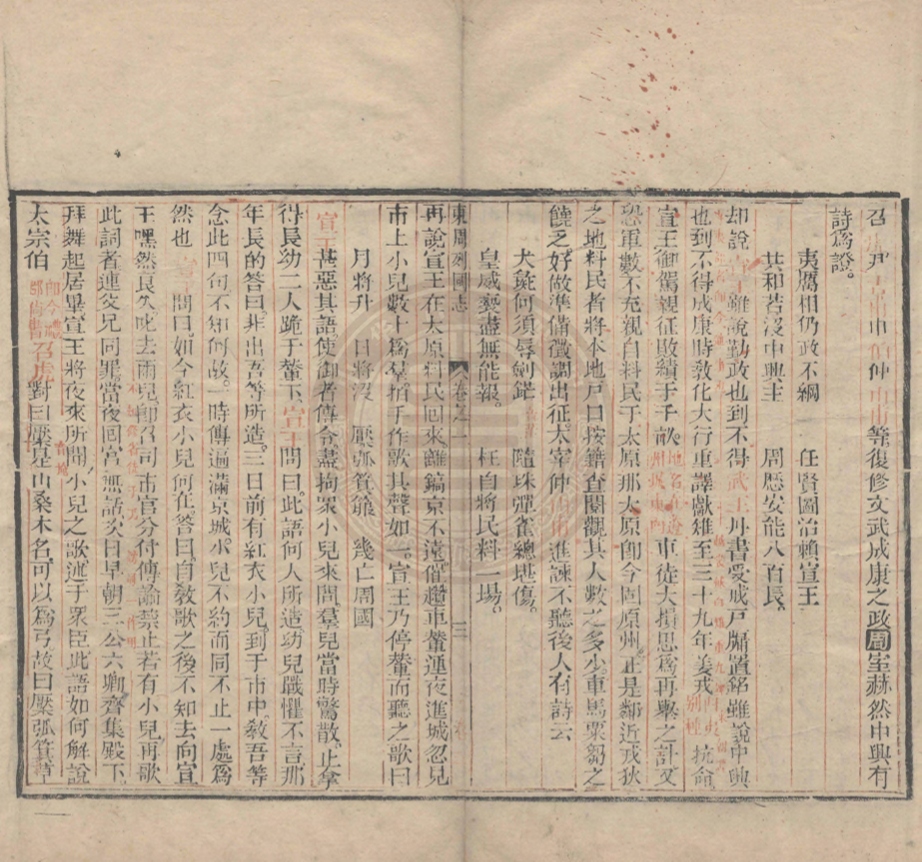 召虎尹吉甫申伯仲山甫等復修文武成康之政周室赫然中興有
詩為證
夷厲相仍政不綱 任賢圖治賴宣王
共和若沒中興主 周歷安能八百長
却說宣王雖說勤政也到不得武王丹書受戒戶牖置銘雖說中興
也到不得成康時敎化大行重譯獻雉至三十九年姜戎抗命
宣王御駕親征敗績于千畝車徒大損思為再舉之計又
恐軍數不充親自料民于太原那太原卽今固原州正是鄰近戎狄
之地料民者將本地戶口按籍查閱觀其人數之多少車馬粟芻之
饒乏好做準備徵調出征太宰仲山甫進諫不聽後人有詩云
犬彘何須辱劍鋩 隨珠彈雀總堪傷
皇威褻盡無能報 枉自將民料一場
東周列國志 卷之一 三
再說宣王在太原料民回來離鎬京不遠催趲車輦連夜進城忽見
市上小兒數十為羣拍手作歌其聲如一宣王乃停輦而聽之歌曰
月將升 日將沒 檿弧箕箙 幾亡周國
宣王甚惡其語使御者傳令盡拘眾小兒來問羣兒當時驚散止拿
得長幼二人跪于輦下宣王問曰此語何人所造幼兒戰懼不言那
年長的答曰非出吾等所造三日前有紅衣小兒到于市中敎吾等
念此四句不知何故一時傳遍滿京城小兒不約而同不止一處為
然也宣王問曰如今紅衣小兒何在答曰自敎歌之後不知去向宣
王嘿然良久叱去兩兒卽召司市官分付傳諭禁止若有小兒再歌
此詞者連父兄同罪當夜回宮無話次日早朝三公六卿齊集殿下
拜舞起居畢宣王將夜來所聞小兒之歌述于眾臣此語如何解說
太宗伯召虎對曰檿是山桑木名可以為弓故曰檿弧箕草